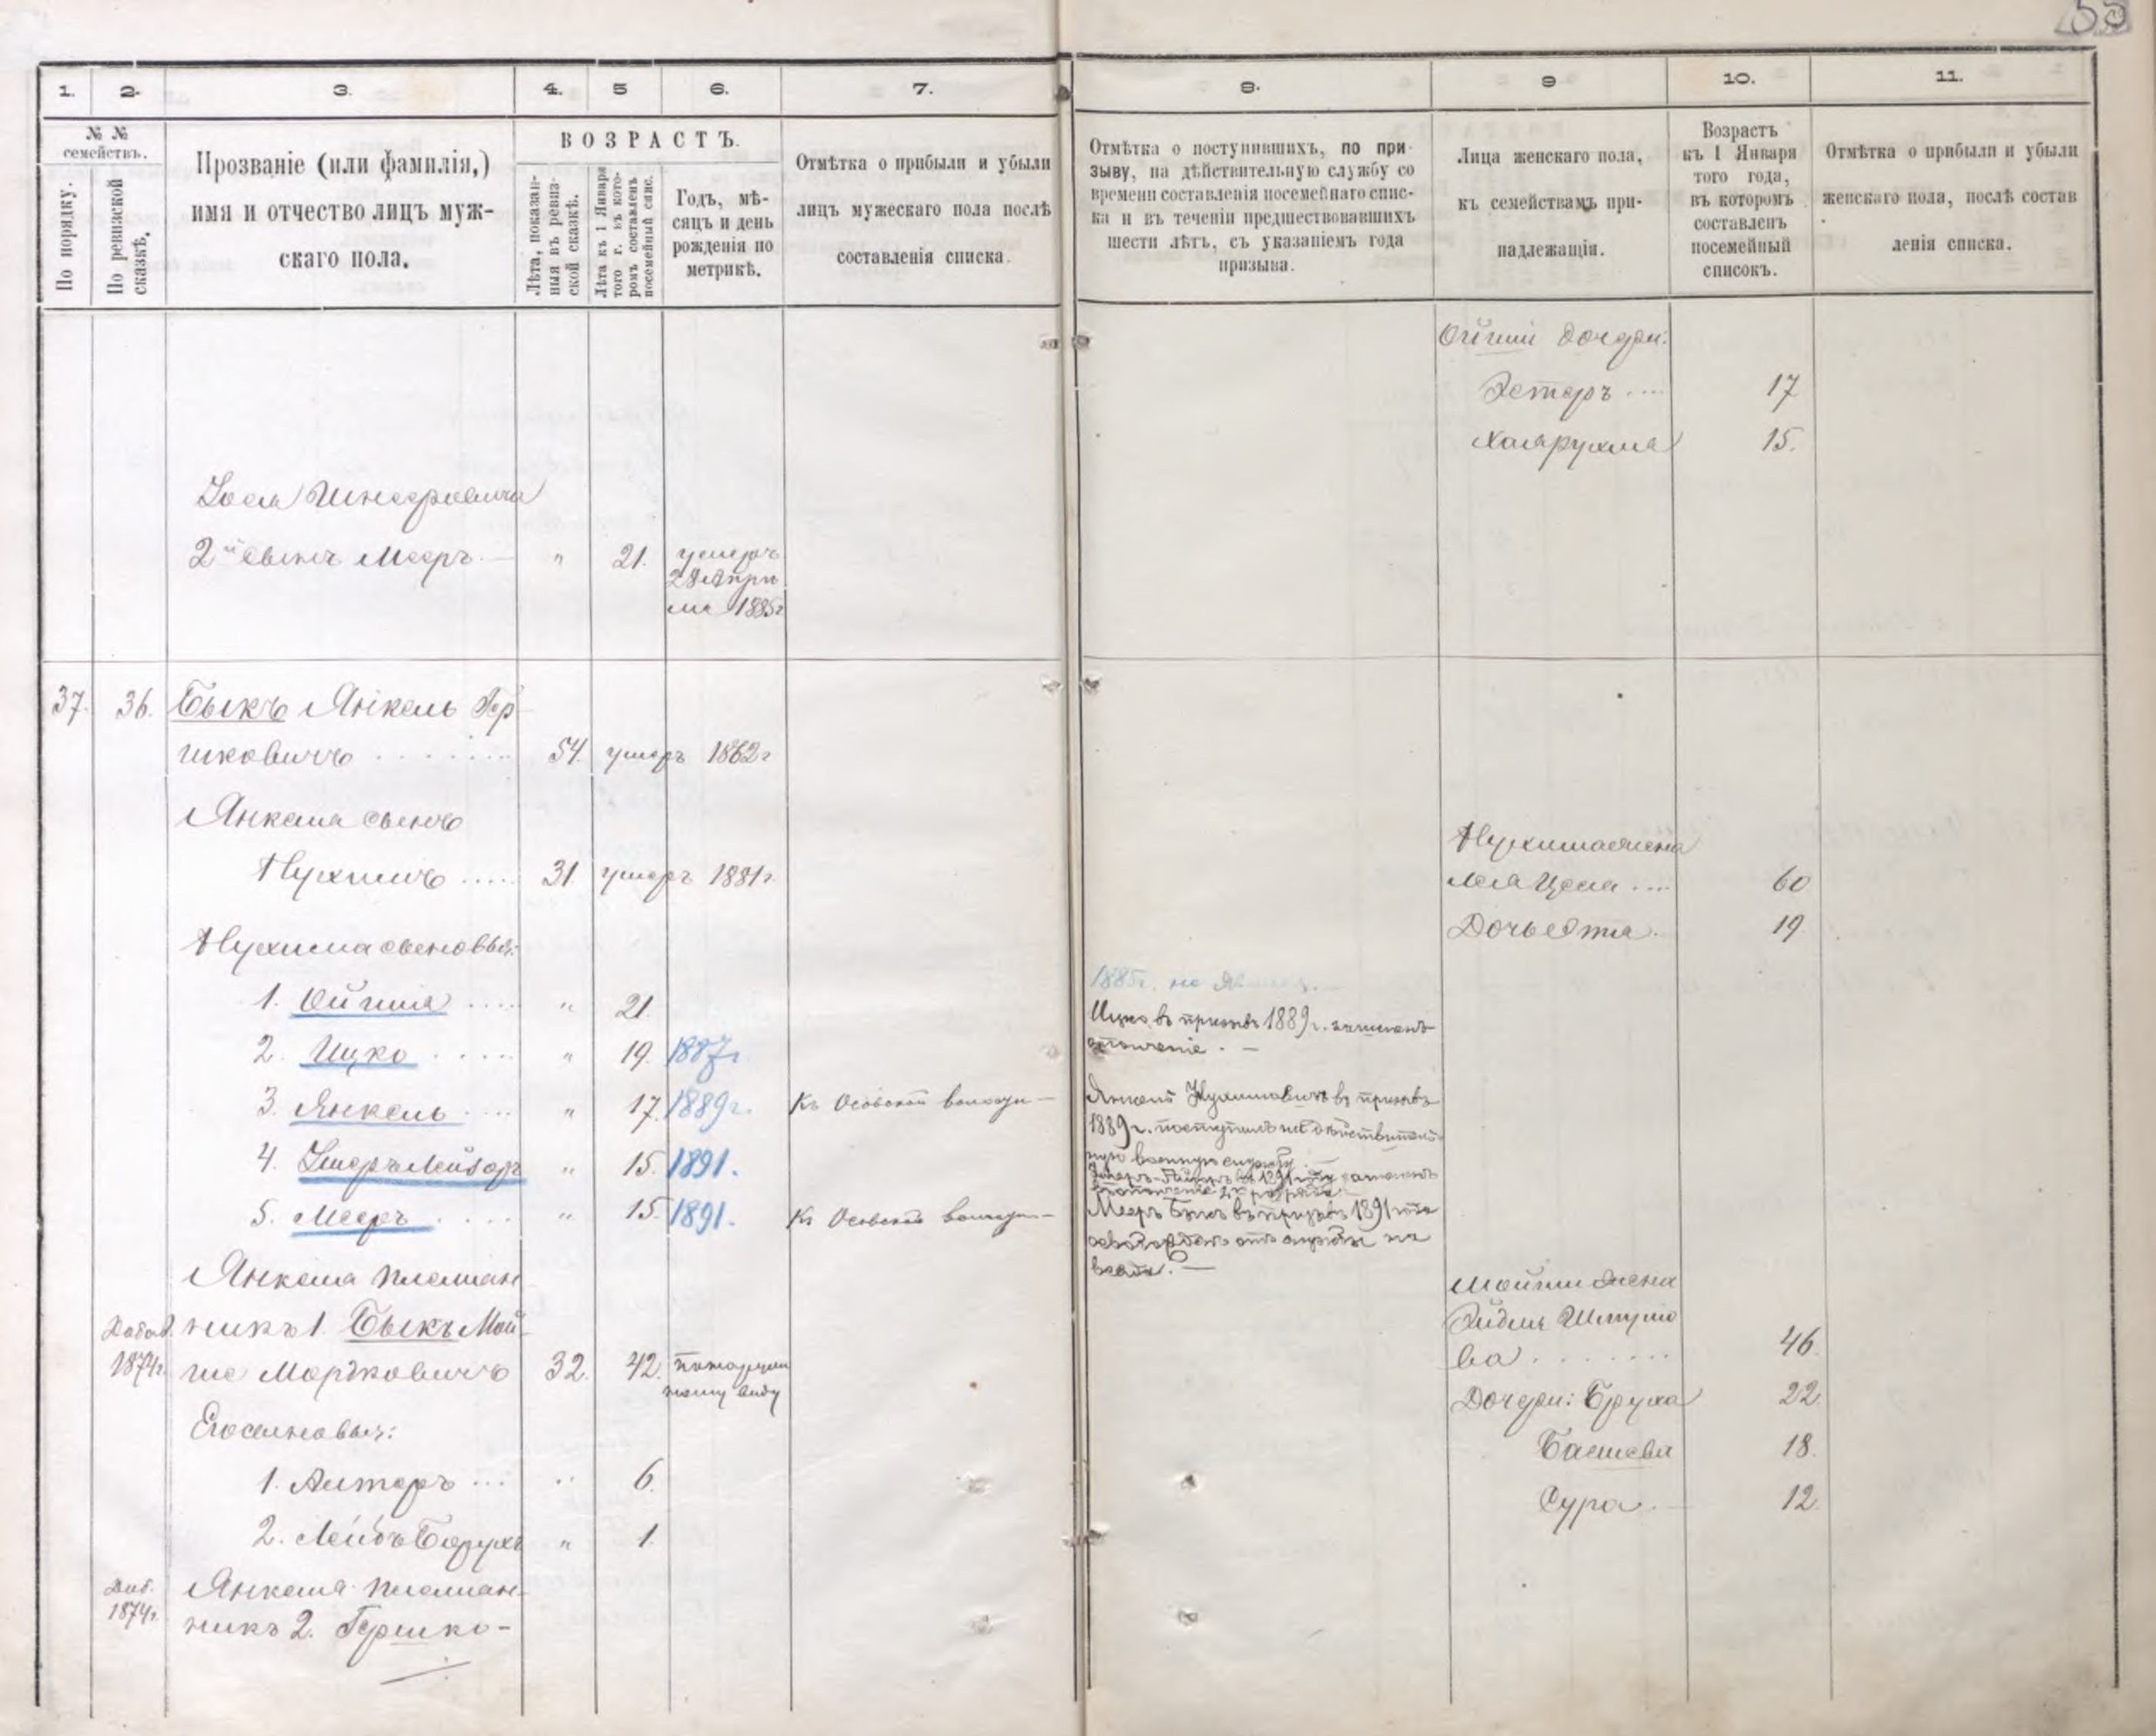 1. 2. 3. 4. 5 6. 7. 8. 9 10. 11.
№ №
семействъ.
По порядку.
По ревизской
сказкѣ.
Прозваніе (или фамилія,)
имя и отчество лицъ муж-
скаго пола.
ВОЗРАСТЪ.
Лѣта, показан-
ныя въ ревиз-
ской сказкѣ.
Лѣта къ 1 Января
того г. въ кото-
ромъ составленъ
посемейный спис.
Годъ, мѣ-
сяцъ и день
рожденія по
метрикѣ.
Отмѣтка о прибыли и убыли
лицъ мужескаго пола послѣ
составленія списка.
Отмѣтка о поступившихъ, по при-
зыву, на дѣйствительную службу со
времени составленія посемейнаго спис-
ка и въ теченіи предшествовавшихъ
шести лѣтъ, съ указаніемъ года
призыва.
Лица женскаго пола,
къ семействамъ при-
надлежащія.
Возрастъ
къ 1 Января
того года,
въ которомъ
составленъ
посемейный
списокъ.
Отмѣтка о прибыли и убыли
женскаго пола, послѣ состав
ленія списка.
дочери:
Эстеръ .... 17
15.
2й сынъ Мееръ — " 21. умеръ
28 Апрѣ
ля 1885г
37. 36. Быкъ Янкель Гер
шковичъ 54. умеръ 1862г
Янкеля сынъ
Нухимъ .... 31. умеръ 1881г.
Нухима жена
60
Дочь 19
Нухима сыновья:
1. Ойшия .... " 21. 1885г. не
2. Ицко .... " 19. 1887г
Ицко въ призывъ 1889г. зачисленъ
ополченіе. —
3. Янкель .... " 17. 1889г. Къ Осовской волости —
Янкель Нухимовичъ въ призывъ
1889г. поступилъ на дѣйствитель-
ную военную службу. —
4. " 15. 1891.
5. Мееръ .... " 15. 1891. Къ Осовской волости —
Мееръ Быкъ въ призывъ 1891 года
отъ службы
Янкеля племян
Добав. никъ 1. Быкъ Мой
1874г. ше Мордковичъ 32. 42.
Мойши жена
Эйдля Шмуло
ва ....... 46.
Дочери: Бруха 22.
Басшева 18.
Сура. — 12.
Его сыновья:
1. Алтеръ ... " 6.
2. Лейбъ Борухъ " 1.
Доб. Янкеля племян-
1874г. никъ 2. Гершко-